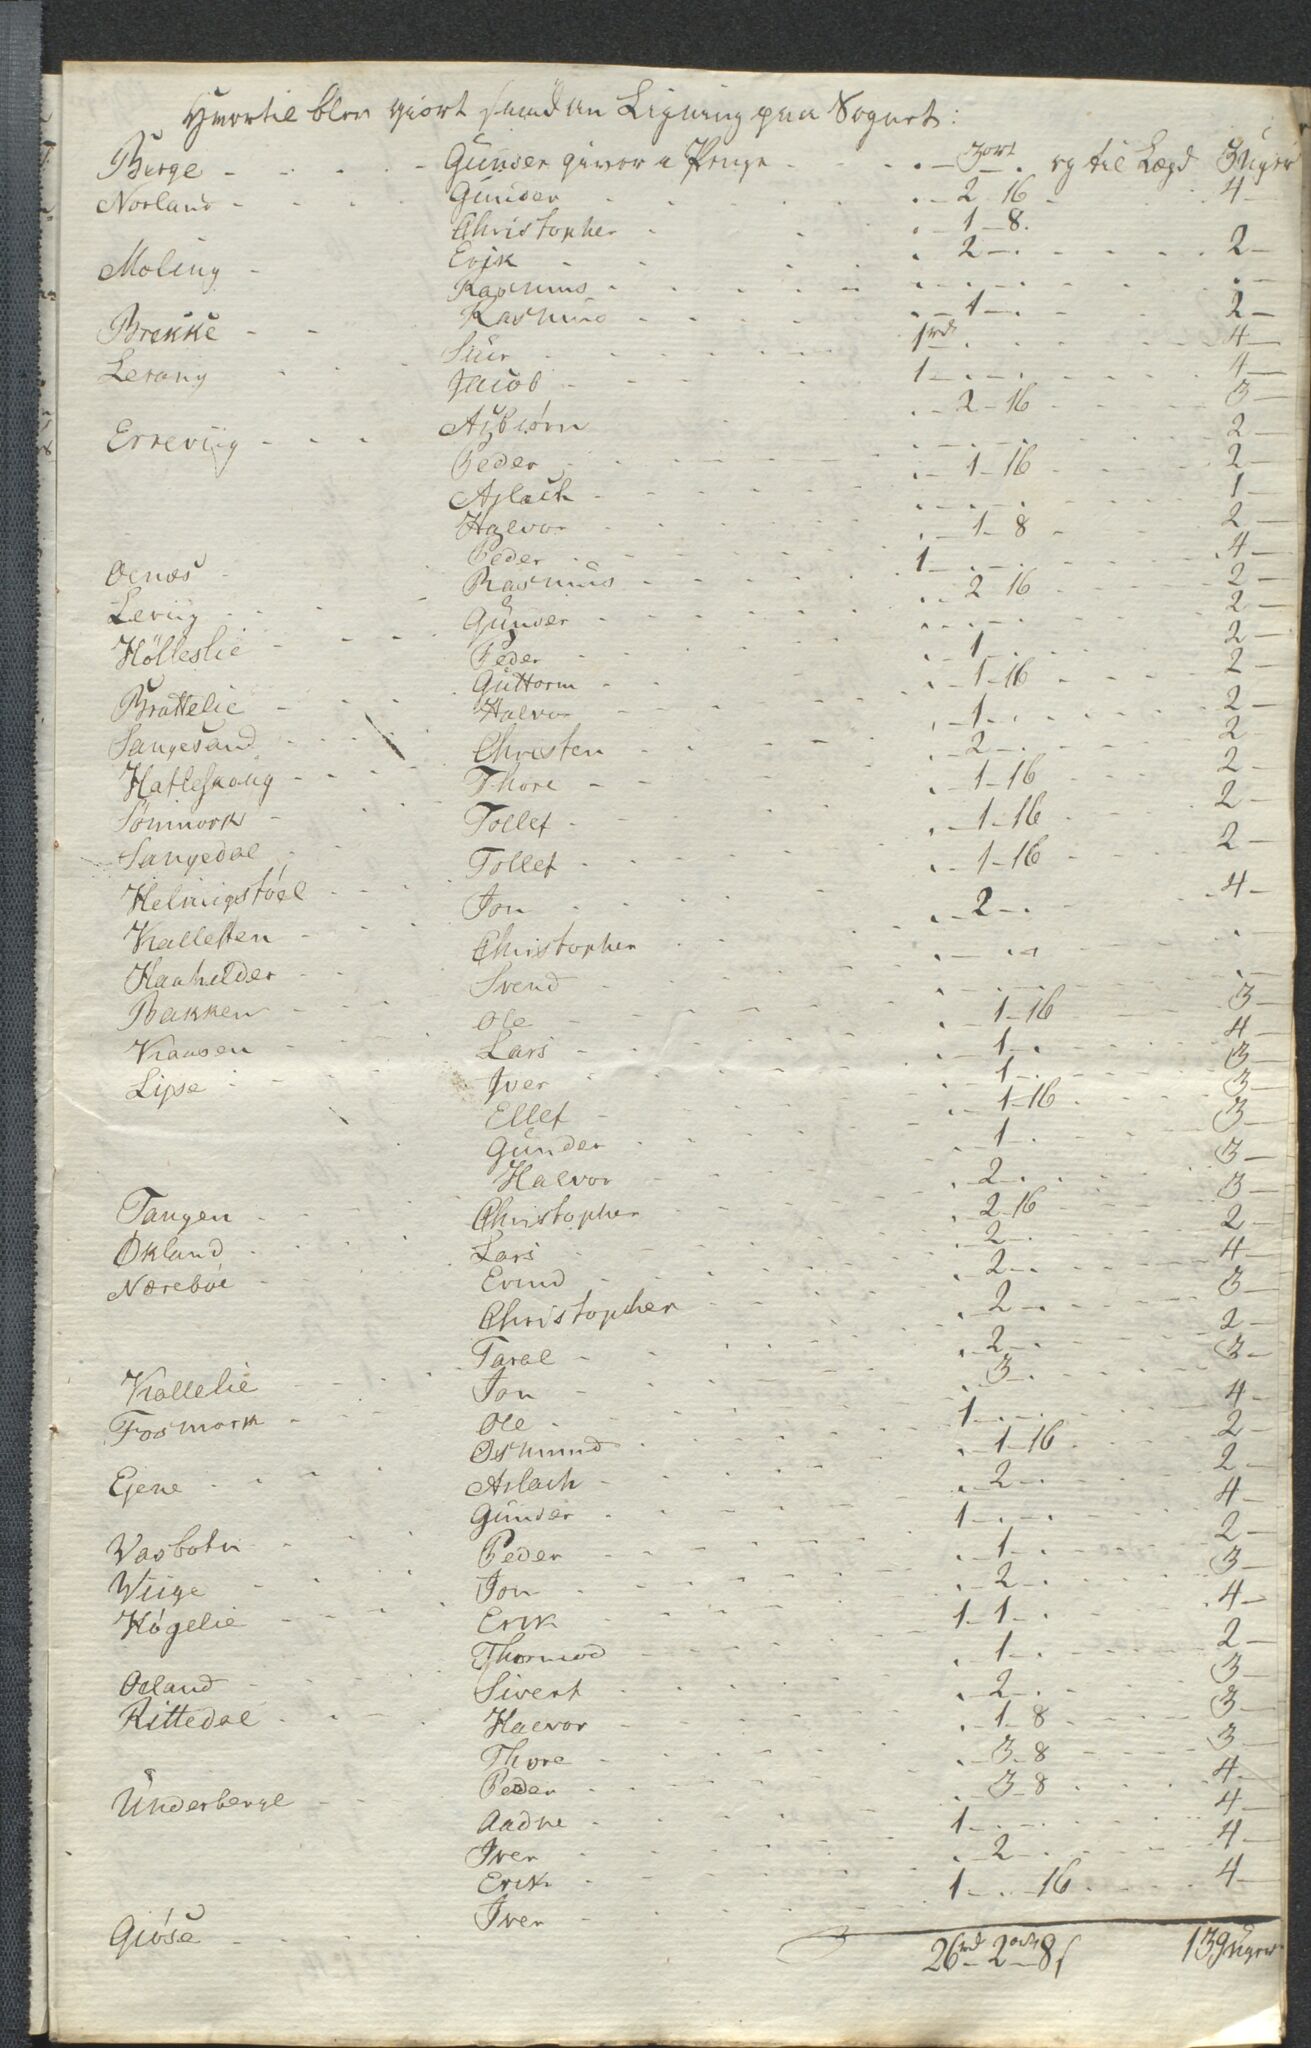 Hvortil blev giort saadan Ligning paa Sognet:
Berge - - - - Gunder giver a Penge - - - . - 3 ort - . og til Lægd 3 Uger
Norland - - - Gunder - - - . - 2 - 16 - - 4 -
Christopher - . - 1 - 8.
Moling - Erik - - - . - 2 - . - - - 2 -
Rasmus - - - . - . - . - - . -
Rasmus - - - . - 1 - . - - 2 -
Brekke - - Siur - - - 1 rd - . - - - 4 -
Lerang - - - Jacob - - - 1 - . - . - - - 4 -
Erreviig - - - Asbiørn - - . - 2 - 16 - - - 3 -
Peder - - - . - . - . - - 2 -
Aslach - - - . - 1 - 16 - - - 2 -
Halvor - - - . - . - . - - 1 -
Peder - - - . - 1 - 8 - - 2 -
Oenæs - Rasmus - - - 1 - . - . - - 4 -
Leviig - - - Gunder - - - . - 2 - 16 - - 2 -
Hølleslie - - - Peder - - - . - . - . - - 2 -
Guttorm - - . - 1 - . - - 2 -
Brattelie - - - Halvor - - - . - 1 - 16 - - - 2 -
Sangesand - - - Christen - - - . - 1 - . - - - 2 -
Hatleskoug - - - Thore - . - 2 - . - - 2 -
Sømmork - Tollef - - - . - 1 - 16 - - - 2 -
Sangedal - - Tollef - - - . - 1 - 16 - - 2 -
Helmigstøel - - - Jon - - - . - 1 - 16 - - - 2 -
Kallesten - - Christopher - - . - 2 - . - - 4 -
Haahelder - - Svend - - . - . - . - .
Bakken - - - Ole - - - . - . - . - - . -
Kaasen - - - Lars - - - . - 1 - 16 - - 3 -
Lipse - - - Iver - - - . - 1 - . - - 4 -
Ellef - - . - 1 - . - - 3 -
Gunder - - - . - 1 - 16 - - - 3 -
Halvor - - . - 1 - . - - 3 -
Tangen - - - Christopher - - . - 2 - . - - - 3 -
Økland - - - Lars - - - . - 2 - 16 - - 3 -
Nærebøe - Evind - - - . - 2 - . - - 2 -
Christopher - - . - 2 - . - - - 4 -
Taral - - - . - 2 - . - - 3 -
Kallelie - - - Jon - - - . - 2 - . - - 2 -
Fosmork - - - Ole - - - . - 3 - . - - 3 -
Osmund - - - 1 - . - . - - 4 -
Ejene - - - Aslach - - - . - 1 - 16 - - 2 -
Gunder - - - . - 2 - . - - 2 -
Vasbotn - - - Peder - - - 1 - . - . - - 4 -
Viige - - - Jon - - - . - 1 - . - - 2 -
Høgelie - - - Erik - - - . - 2 - . - - 3 -
Thormod - - - 1 - 1 - . - - 4 -
Øeland - - Sivert - - - . - 1 - . - - 2 -
Rittedal - - - Halvor - - - . - 2 - . - - 3 -
Thore - - - . - 1 - 8 - - - 3 -
Underberge - - Peder - - - . - 3 - 8 - - - 3 -
Aadne - - - . - 3 - 8 - - - 4 -
Iver - - - 1 - . - . - - 4 -
Erik - - - . - 2 - . - - 4 -
Giøse - - - Iver - - - 1 - . - 16 - - - 4 -
26 rd - 2 ort - 8 s 139 Uger